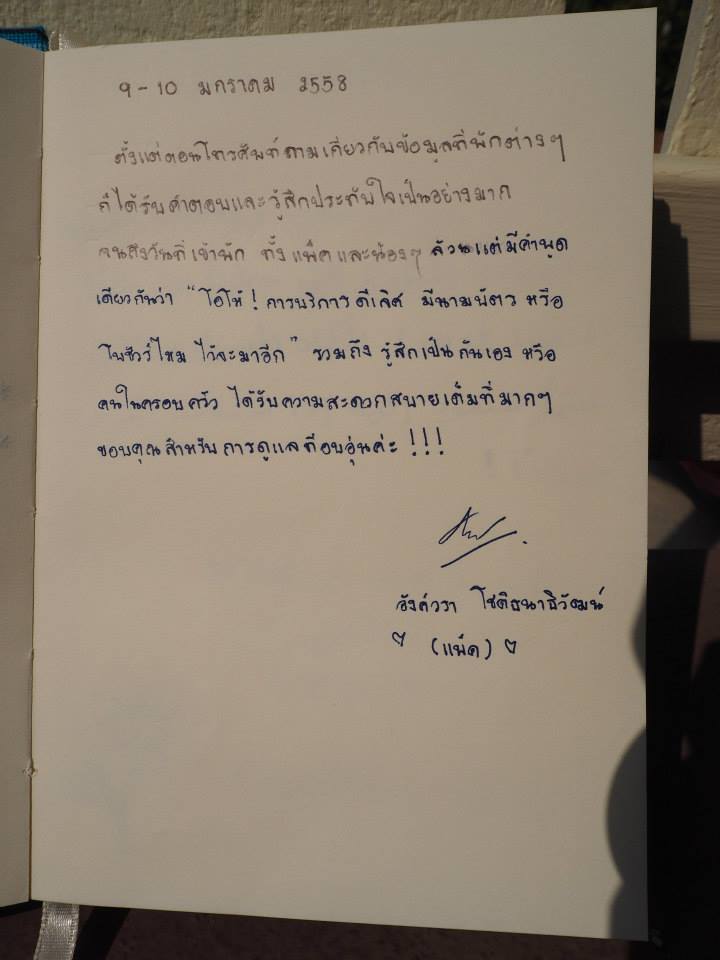 9-10 มกราคม 2558
ตั้งแต่ตอนโทรศัพท์ถามเกี่ยวกับข้อมูลที่พักต่างๆ
ก็ได้รับคำตอบและรู้สึกประทับใจเป็นอย่างมาก
จนถึงวันที่เข้าพัก ทั้งแพ็คและน้องๆ ล้วนแต่มีคำพูด
เดียวกันว่า "โอโห้! การบริการดีเลิศ มีนามบัตร หรือ
โบชัวร์ไหม ไว้จะมาอีก" รวมถึง รู้สึกเป็นกันเอง หรือ
คนในครอบครัว ได้รับความสะดวกสบายเต็มที่มากๆ
ขอบคุณสำหรับการดูแลที่อบอุ่นค่ะ!!!
โชติธนาธิวัฒน์
(แพ็ค)